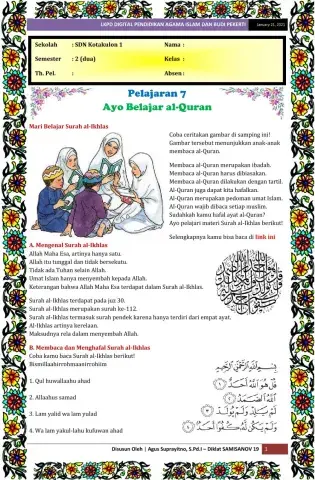 LKPD DIGITAL PENDIDIKAN AGAMA ISLAM DAN BUDI PEKERTI January 21, 2021
Sekolah : SDN Kotakulon 1 Nama :
Semester : 2 (dua) Kelas :
Th. Pel. : Absen :
Pelajaran 7
Ayo Belajar al-Quran
Mari Belajar Surah al-Ikhlas
Coba ceritakan gambar di samping ini!
Gambar tersebut menunjukkan anak-anak
membaca al-Quran.
Membaca al-Quran merupakan ibadah.
Membaca al-Quran harus dibiasakan.
Membaca al-Quran dilakukan dengan tartil.
Al-Quran juga dapat kita hafalkan.
Al-Quran merupakan pedoman umat Islam.
Al-Quran wajib dibaca setiap muslim.
Sudahkah kamu hafal ayat al-Quran?
Ayo pelajari materi Surah al-Ikhlas berikut!
Selengkapnya kamu bisa baca di link ini
A. Mengenal Surah al-Ikhlas
Allah Maha Esa, artinya hanya satu.
Allah itu tunggal dan tidak bersekutu.
Tidak ada Tuhan selain Allah.
Umat Islam hanya menyembah kepada Allah.
Keterangan bahwa Allah Maha Esa terdapat dalam Surah al-Ikhlas.
Surah al-Ikhlas terdapat pada juz 30.
Surah al-Ikhlas merupakan surah ke-112.
Surah al-Ikhlas termasuk surah pendek karena hanya terdiri dari empat ayat.
Al-Ikhlas artinya kerelaan.
Maksudnya rela dalam menyembah Allah.
B. Membaca dan Menghafal Surah al-Ikhlas
Coba kamu baca Surah al-Ikhlas berikut!
Bismillaahirrohmaanirrohiim
بِسْمِ اللَّهِ الرَّحْمَٰنِ الرَّحِيمِ
1. Qul huwallaahu ahad
قُلْ هُوَ اللَّهُ أَحَدٌ ۝١
2. Allaahus samad
اللَّهُ الصَّمَدُ ۝٢
3. Lam yalid wa lam yulad
لَمْ يَلِدْ وَلَمْ يُولَدْ ۝٣
4. Wa lam yakul-lahu kufuwan ahad
وَلَمْ يَكُنْ لَهُ كُفُوًا أَحَدٌ ۝٤
Disusun Oleh | Agus Suprayitno, S.Pd.I – Diklat SAMISANOV 19 1